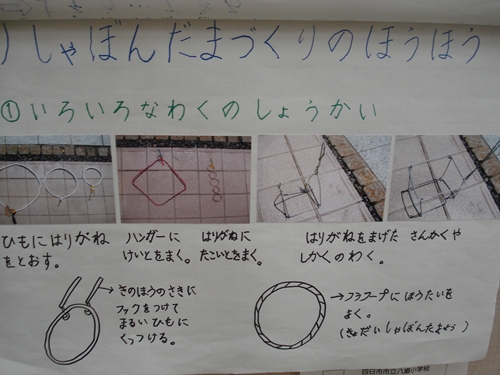 しゃぼんだまづくりのほうほう
①いろいろなわくのしょうかい
ひもにはりがね
をとおす。
ハンガーに
けいとをまく。
はりがねに
たこいとをまく。
はりがねをまげた さんかくや
しかくのわく。
きのほうのさきに
フックをつけて
まるいひもに
くっつける。
フラフープにほうたいを
まく。
(きょだいしゃぼんだまよう)
四日市市立八郷小学校